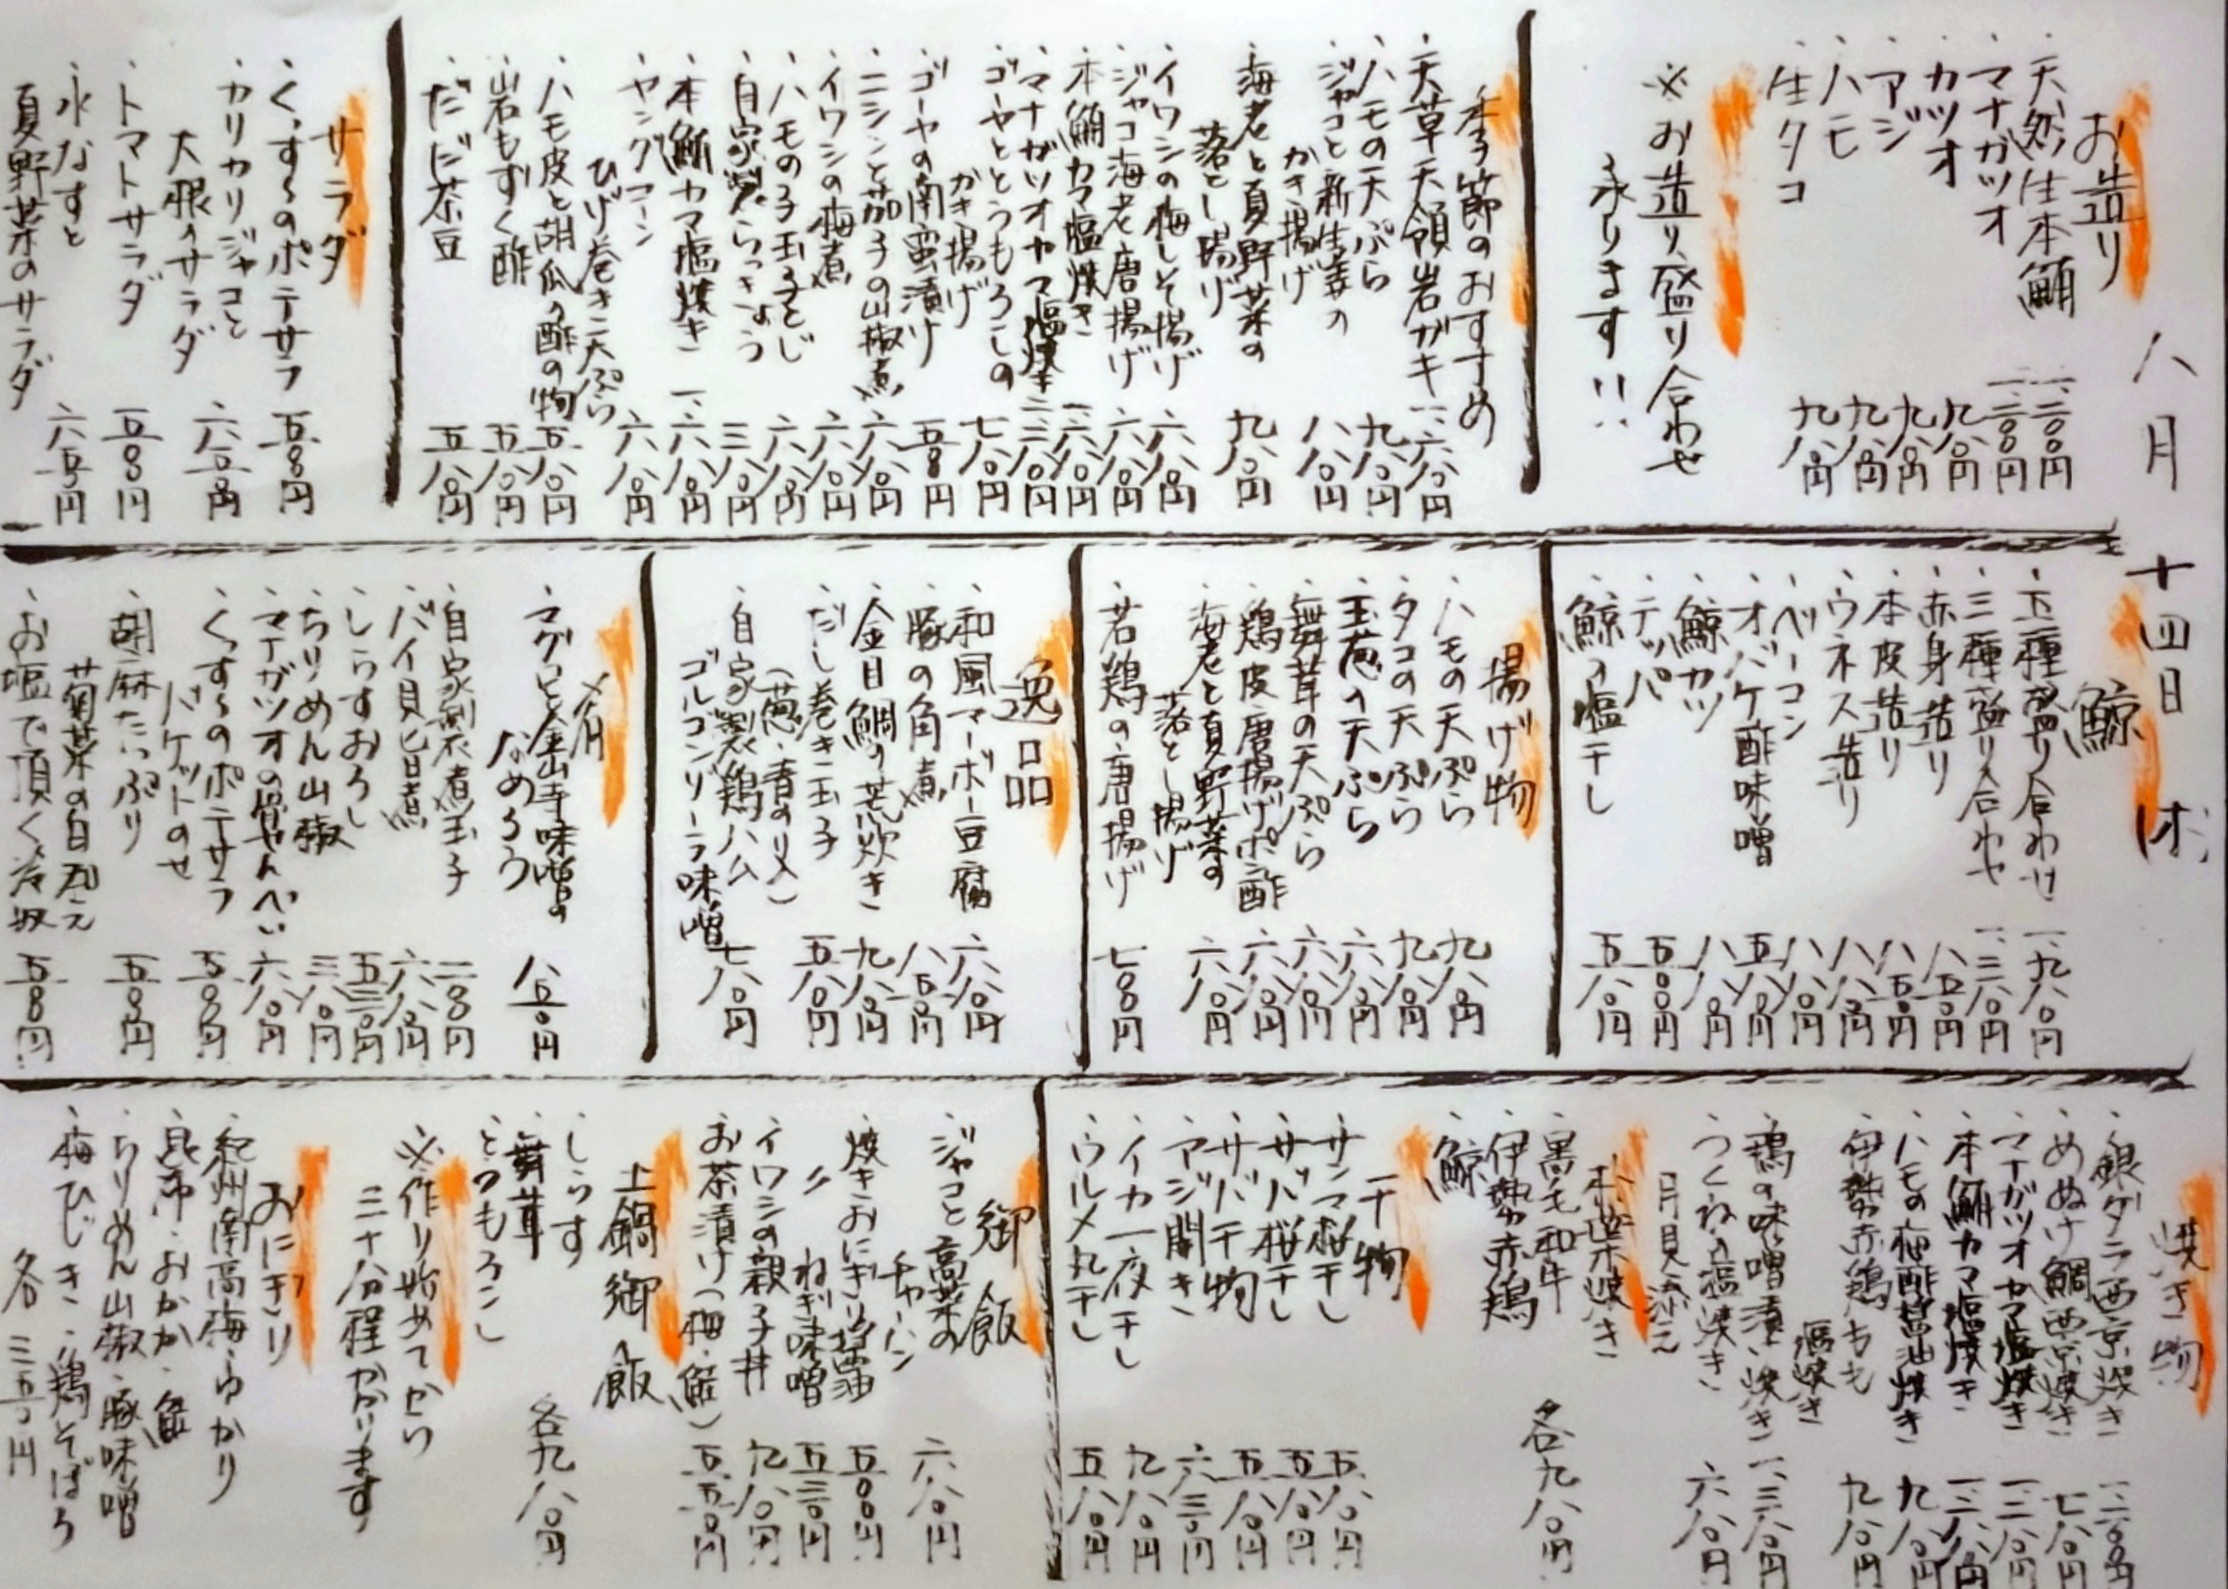 八月十四日
お造り
・天然生本鮪 一、二〇〇円
・マナガツオ 一、二〇〇円
・カツオ 九八〇円
・アジ 九八〇円
・ハモ 九八〇円
・生タコ 九八〇円
※お造り盛り合わせ
承ります!!
季節のおすすめ
・天草天領岩ガキ 一、六八〇円
・ハモの天ぷら 九八〇円
・ジャコと新生姜の
かき揚げ 八八〇円
・海老と夏野菜の
落とし揚げ 九八〇円
・イワシの梅しそ揚げ 六八〇円
・ジャコ海老唐揚げ 六八〇円
・本鮪カマ塩焼き 一、六八〇円
・マナガツオカマ塩焼き 一、三八〇円
・ゴーヤととうもろこしの
かき揚げ 七八〇円
・ゴーヤの南蛮漬け 五〇〇円
・ニシンと茄子の山椒煮 六八〇円
・イワシの梅煮 六八〇円
・ハモの子玉子とじ 六八〇円
・自家製らっきょう 三八〇円
・本鮪カマ塩焼き 一、六八〇円
・ヤングコーン
ひげ巻き天ぷら 六八〇円
・ハモ皮と胡瓜の酢の物 五八〇円
・岩もずく酢 五八〇円
・だだ茶豆 五八〇円
サラダ
・くんすらのポテサラ 五五〇円
・カリカリジャコと
大根のサラダ 六五〇円
・トマトサラダ 五五〇円
・水なすと
夏野菜のサラダ 六五〇円
鯨
・五種盛り合わせ 一、九八〇円
・三種盛り合わせ 一、三八〇円
・赤身造り 八五〇円
・本皮造り 八五〇円
・ウネス造り 八八〇円
・ベーコン 八八〇円
・オバケ酢味噌 五八〇円
・鯨カツ 八八〇円
・テッパ 五〇〇円
・鯨の塩干し 五八〇円
揚げ物
・ハモの天ぷら 九八〇円
・タコの天ぷら 九八〇円
・玉葱の天ぷら 六八〇円
・舞茸の天ぷら 六八〇円
・鶏皮唐揚げポン酢 六八〇円
・海老と夏野菜の
落とし揚げ 六八〇円
・若鶏の唐揚げ 七〇〇円
逸品
・和風マーボー豆腐 六八〇円
・豚の角煮 八五〇円
・金目鯛の荒炊き 九八〇円
・だし巻き玉子
(葱・青のり) 五八〇円
・自家製鶏ハム
ゴルゴンゾーラ味噌 七八〇円
〆肴
・マグロと金山寺味噌の
なめろう 八五〇円
・自家製煮玉子 二〇〇円
・バイ貝旨煮 六八〇円
・しらすおろし 五三〇円
・ちりめん山椒 三八〇円
・マナガツオの骨せんべい 六八〇円
・くんすらのポテサラ
バケットのせ 五五〇円
・胡麻たっぷり
菊菜の白和え 五五〇円
・お塩で頂く冷奴 五五〇円
焼き物
・銀ダラ西京焼き 一、二〇〇円
・めぬけ鯛西京焼き 七八〇円
・マナガツオカマ塩焼き 一、三八〇円
・本鮪カマ塩焼き 一、六八〇円
・ハモの梅酢醤油焼き 九八〇円
・伊勢赤鶏もも
塩焼き 九八〇円
・鶏の味噌漬け焼き 一、三八〇円
・つくねの塩焼き
月見添え 六八〇円
朴葉焼き
・黒毛和牛
・伊勢赤鶏
・鯨
各九八〇円
干物
・サンマ桜干し 五八〇円
・サバ桜干し 五八〇円
・サバ干物 五八〇円
・アジ開き 六三〇円
・イカ一夜干し 九八〇円
・ウルメ丸干し 五八〇円
御飯
・ジャコと高菜の
チャーハン 六八〇円
・焼きおにぎり醤油 五〇〇円
〃 ねぎ味噌 五三〇円
・イワシの親子丼 九八〇円
・お茶漬け(梅・鮭) 五五〇円
土鍋御飯
・しらす
・舞茸
・とうもろこし
各九八〇円
※作り始めてから
三十分程かかります
おにぎり
・紀州南高梅・ゆかり
・昆布・おかか・鮭
・ちりめん山椒・豚味噌
・梅ひじき・鶏そぼろ
各三五〇円